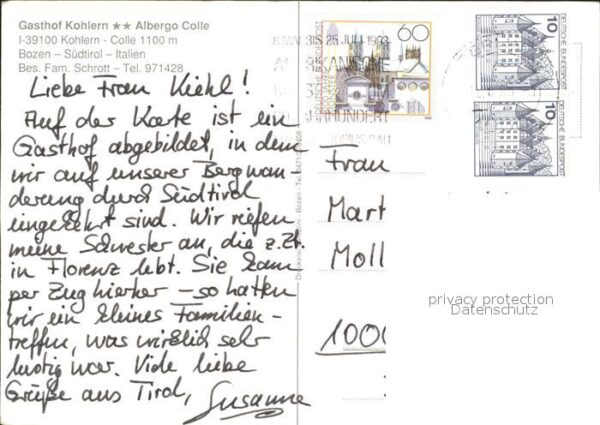 Gasthof Kohlern ★★ Albergo Colle
I-39100 Kohlern - Colle 1100 m
Bozen – Südtirol – Italien
Bes. Fam. Schrott – Tel. 971428
Liebe Frau Kiehl!
Auf der Karte ist ein
Gasthof abgebildet, in dem
wir auf unserer Bergwan-
derung durch Südtirol
eingekehrt sind. Wir riefen
meine Schwester an, die z.Zt.
in Florenz lebt. Sie kam
per Zug hierher – so hatten
wir ein kleines Familien-
treffen, was wirklich sehr
lustig war. Viele liebe
Grüße aus Tirol,
Susanne
BIS 25. JULI 1993
60
10
DEUTSCHE BUNDESPOST
10
DEUTSCHE BUNDESPOST
Frau
Mart
Moll
1000
privacy protection
Datenschutz